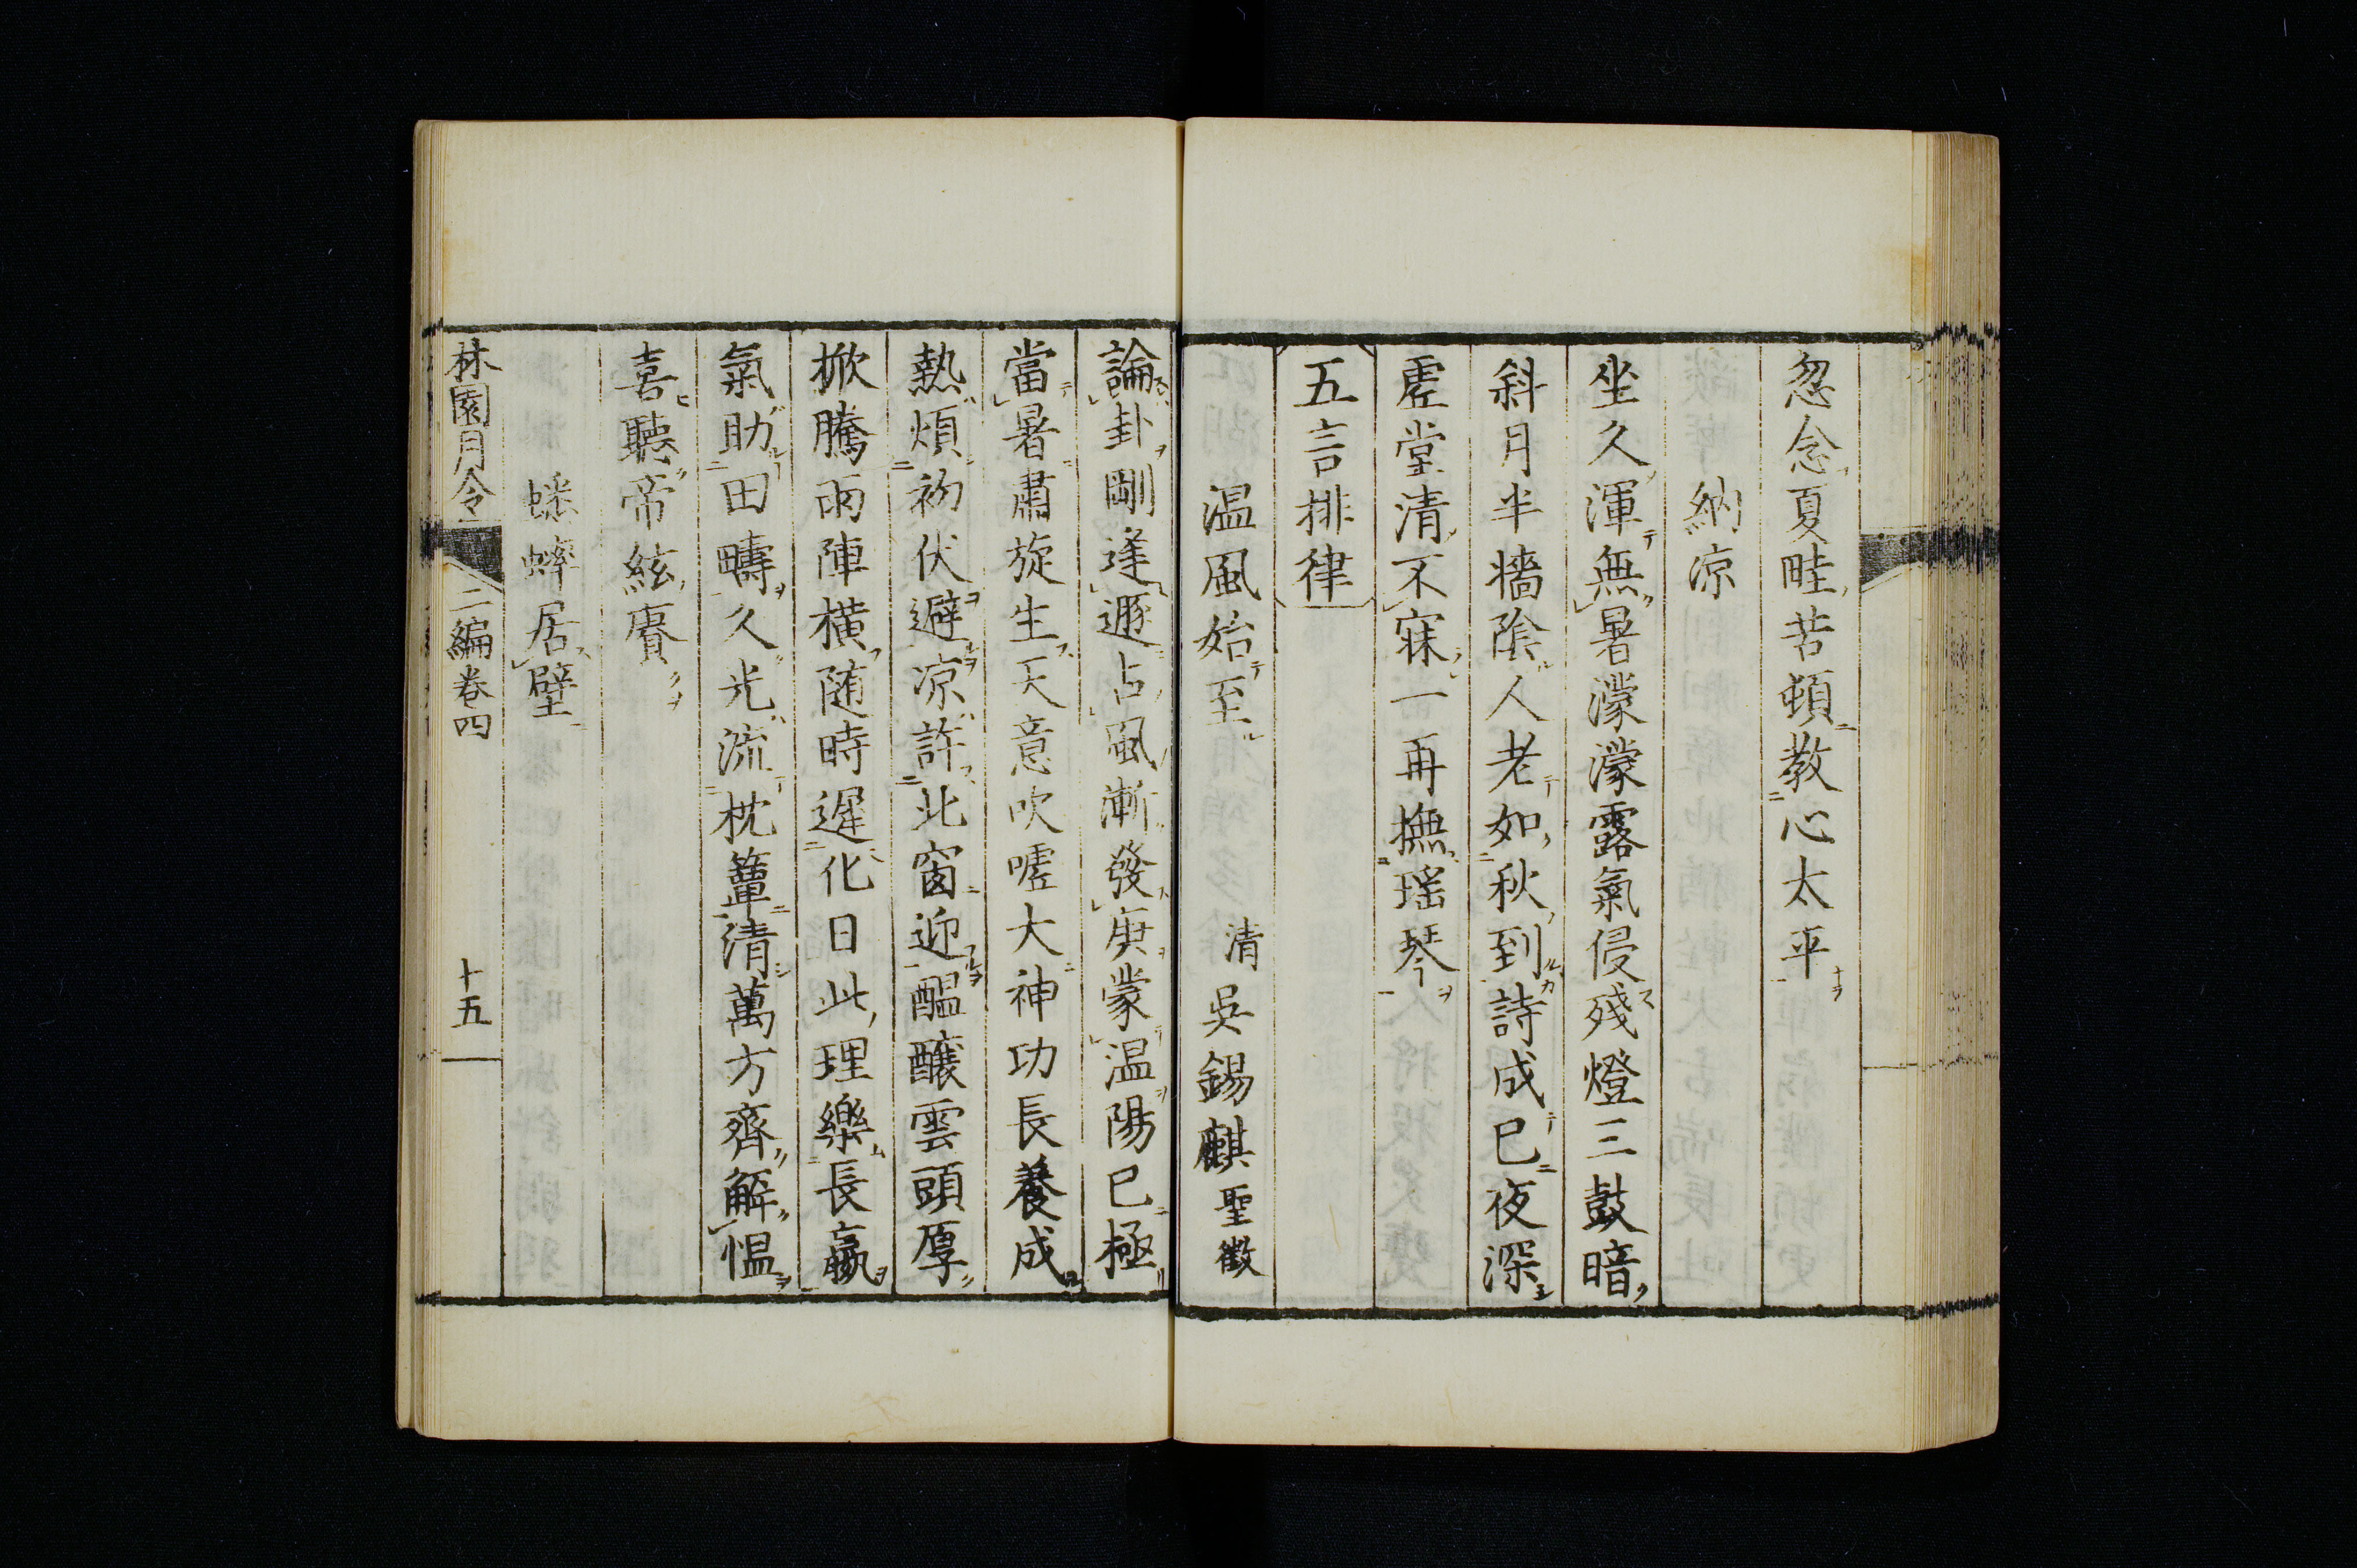 忽念夏畦苦頓教心太平
納涼
坐久渾無暑濛濛露氣侵殘燈三鼓暗
斜月半墻陰人老如秋到詩成已夜深
虛堂清不寐一再撫瑤琴
五言排律
温風始至　清　吳錫麒聖徵
論卦剛逢遯占風漸發庚蒙温陽已極
當暑肅旋生天意吹噓大神功長養成
熱煩初伏避涼許北窗迎醖釀雲頭厚
掀騰雨陣橫随時遲化日此理樂長贏
氣助田疇久光流枕簟清萬方齊解愠
喜聽帝絃賡
蟋蟀居壁
林園月令　二編卷四　十五